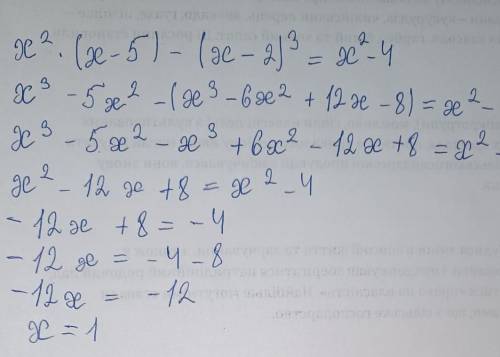 x² · (x - 5) - (x - 2)³ = x² - 4
x³ - 5x² - (x³ - 6x² + 12x - 8) = x² -
x³ - 5x² - x³ + 6x² - 12x + 8 = x² -
x² - 12x + 8 = x² - 4
- 12x + 8 = - 4
- 12x = - 4 - 8
- 12x = - 12
x = 1